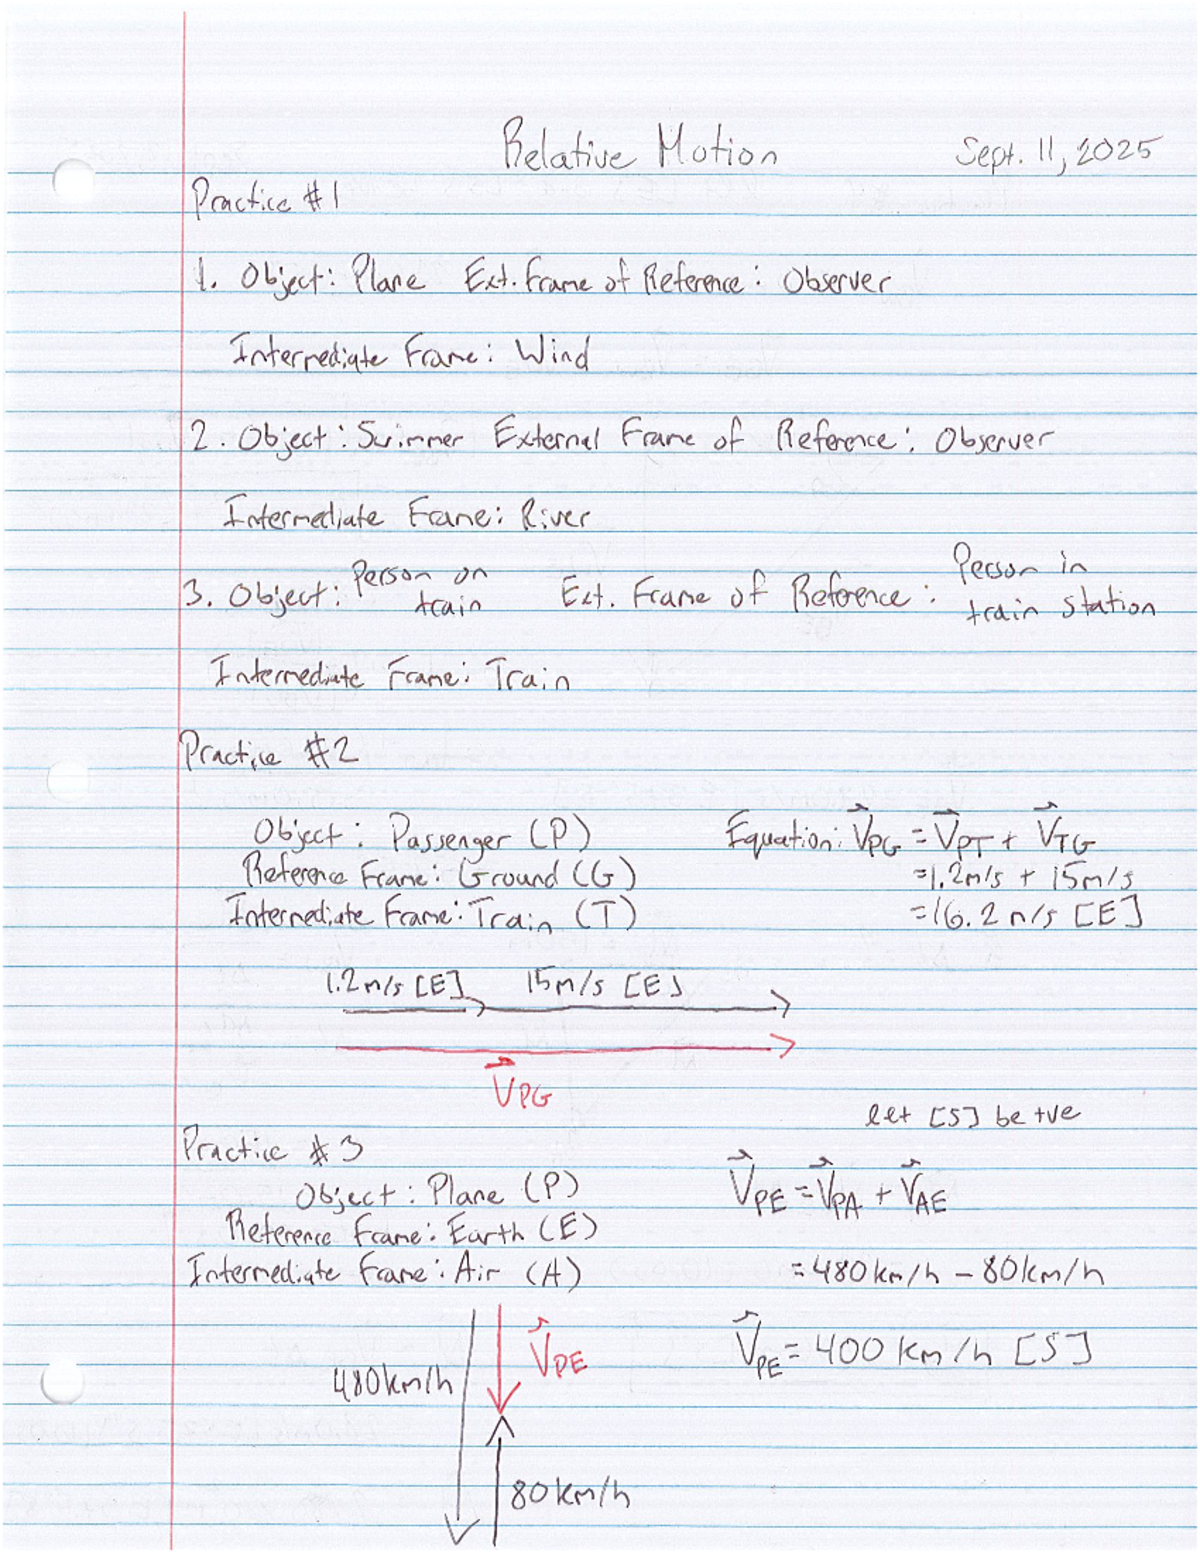 Relative Motion Sept. 11, 2025
Practice #1
1. Object: Plane Ext. Frame of Reference: Observer
Intermediate Frame: Wind
2. Object: Swimmer External Frame of Reference: Observer
Intermediate Frame: River
3. Object: Person on train Ext. Frame of Reference: Person in train station
Intermediate Frame: Train
Practice #2
Object: Passenger (P) Equation: V⃗PG = V⃗PT + V⃗TG
Reference Frame: Ground (G) =1.2m/s + 15m/s
Intermediate Frame: Train (T) =16.2 m/s [E]
1.2m/s [E] 15m/s [E]
V⃗PG
let [S] be +ve
Practice #3
Object: Plane (P) V⃗PE = V⃗PA + V⃗AE
Reference Frame: Earth (E)
Intermediate Frame: Air (A) =480km/h - 80km/h
480km/h V⃗PE V⃗PE = 400 km/h [S]
80km/h